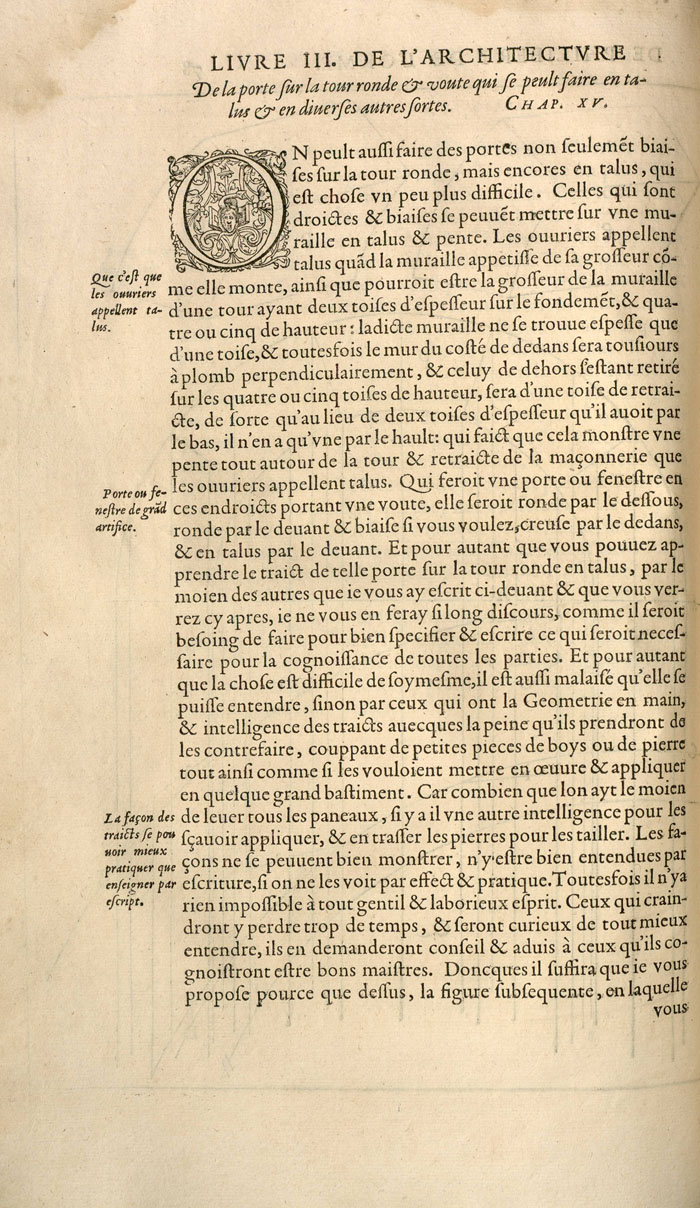 LIVRE III. DE L'ARCHITECTVRE
De la porte ſur la tour ronde & voute qui ſe peult faire en ta-
lus & en diuerſes autres ſortes. CHAP. XV.
ON peult auſſi faire des portes non ſeulemẽt biai-
ſes ſur la tour ronde, mais encores en talus, qui
eſt choſe vn peu plus difficile. Celles qui ſont
droictes & biaiſes ſe peuuẽt mettre ſur vne mu-
raille en talus & pente. Les ouuriers appellent
talus quãd la muraille appetiſſe de ſa groſſeur cõ-
me elle monte, ainſi que pourroit eſtre la groſſeur de la muraille
d'une tour ayant deux toiſes d'eſpeſſeur ſur le fondemẽt, & qua-
tre ou cinq de hauteur: ladicte muraille ne ſe trouue eſpeſſe que
d'une toiſe, & toutesfois le mur du coſté de dedans ſera touſiours
à plomb perpendiculairement, & celuy de dehors ſ'eſtant retiré
ſur les quatre ou cinq toiſes de hauteur, ſera d'une toiſe de retrai-
cte, de ſorte qu'au lieu de deux toiſes d'eſpeſſeur qu'il auoit par
le bas, il n'en a qu'vne par le hault: qui faict que cela monſtre vne
pente tout autour de la tour & retraicte de la maçonnerie que
les ouuriers appellent talus. Qui feroit vne porte ou feneſtre en
ces endroicts portant vne voute, elle ſeroit ronde par le deſſous,
ronde par le deuant & biaiſe ſi vous voulez, creuſe par le dedans,
& en talus par le deuant. Et pour autant que vous pouuez ap-
prendre le traict de telle porte ſur la tour ronde en talus, par le
moien des autres que ie vous ay eſcrit ci-deuant & que vous ver-
rez cy apres, ie ne vous en feray ſi long diſcours, comme il ſeroit
beſoing de faire pour bien ſpecifier & eſcrire ce qui ſeroit neceſ-
ſaire pour la cognoiſſance de toutes les parties. Et pour autant
que la choſe eſt difficile de ſoymeſme, il eſt auſſi malaiſé qu'elle ſe
puiſſe entendre, ſinon par ceux qui ont la Geometrie en main,
& intelligence des traicts auecques la peine qu'ils prendront de
les contrefaire, couppant de petites pieces de boys ou de pierre
tout ainſi comme ſi les vouloient mettre en œuure & appliquer
en quelque grand baſtiment. Car combien que lon ayt le moien
de leuer tous les paneaux, ſi y a il vne autre intelligence pour les
ſçauoir appliquer, & en traſſer les pierres pour les tailler. Les fa-
çons ne ſe peuuent bien monſtrer, n'y eſtre bien entendues par
eſcriture, ſi on ne les voit par effect & pratique. Toutesfois il n'ya
rien impoſſible à tout gentil & laborieux eſprit. Ceux qui crain-
dront y perdre trop de temps, & ſeront curieux de tout mieux
entendre, ils en demanderont conſeil & aduis à ceux qu'ils co-
gnoiſtront eſtre bons maiſtres. Doncques il ſuffira que ie vous
propoſe pource que deſſus, la figure ſubſequente, en laquelle
vous
Que c'eſt que
les ouuriers
appellent ta-
lus.
Porte ou fe-
neſtre de grãd
artifice.
La façon des
traicts ſe pou
uoir mieux
pratiquer que
enſeigner par
eſcript.